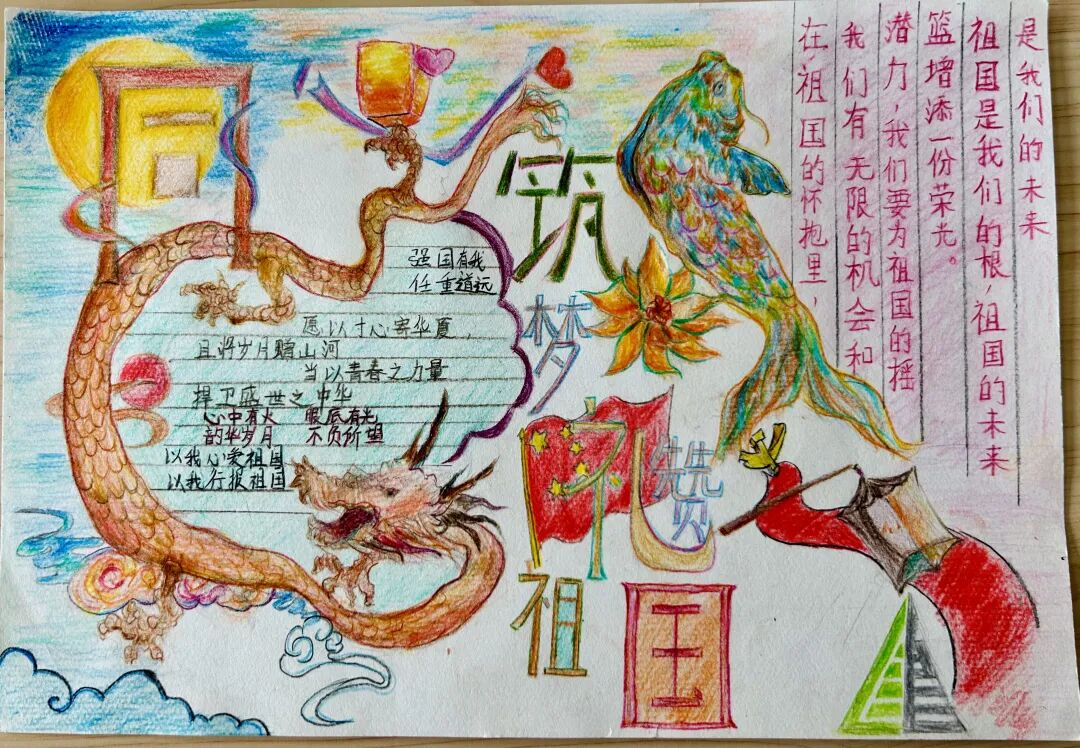 同
筑
梦
礼赞
祖国
强国有我
任重道远
愿以寸心寄华夏，
且将岁月赠山河
当以青春之力量
捍卫盛世之中华
心中有火 眼底有光
韵华岁月 不负所望
以我心爱祖国
以我行报祖国
在祖国的怀抱里，
我们有无限的机会和
潜力，我们要为祖国的摇
篮增添一份荣光。
祖国是我们的根，祖国的未来
是我们的未来